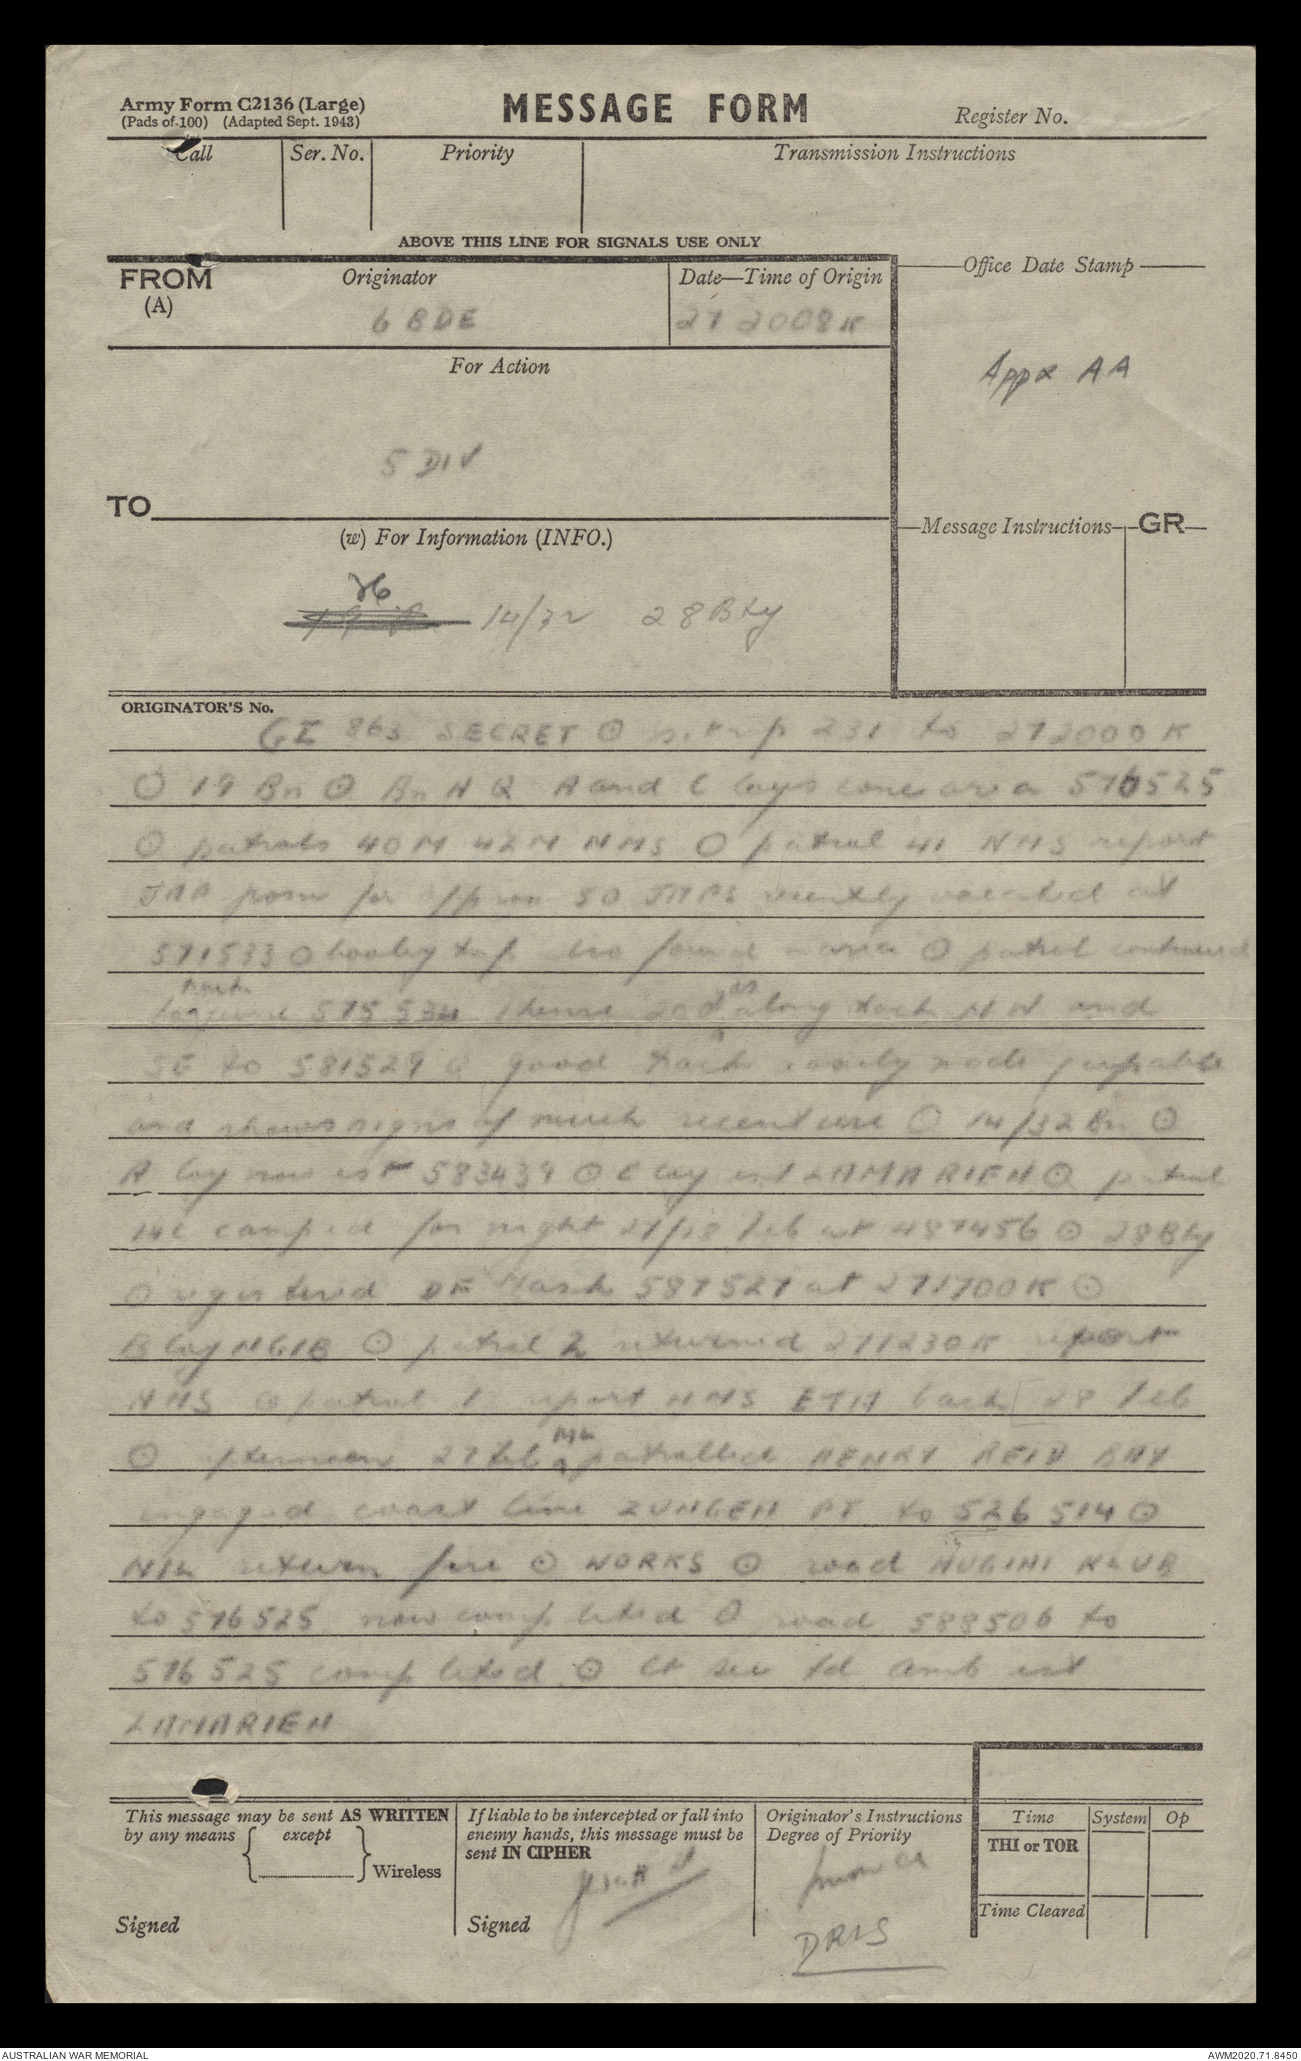 Army Form C2136 (Large)
(Pads of 100) (Adapted Sept. 1943)
MESSAGE FORM
Register No.
Call
Ser. No.
Priority
Transmission Instructions
ABOVE THIS LINE FOR SIGNALS USE ONLY
FROM
(A)
Originator
6 BDE
Date—Time of Origin
27 2008K
Office Date Stamp
Appx AA
For Action
5 DIV
TO
(w) For Information (INFO.)
Message Instructions
GR
14/32 28 Bty
ORIGINATOR'S No.
GI 863 SECRET ⊙ sitrep 231 to 272000K
⊙ 19 Bn ⊙ Bn HQ A and C Coys conc area 576525
⊙ patrols 40M 42M NMS ⊙ patrol 41 NMS report
JAP posn for approx 50 JAPS recently vacated at
571533 ⊙ booby trap found area ⊙ patrol continued
track
575534 thence along track NW and
SE to 581529 ⊙ good track easily made jeepable
and shows signs of much recent use ⊙ 14/32 Bn ⊙
A Coy now est 583439 ⊙ C Coy est LAMARIEN ⊙ patrol
14C camped for night 27/28 Feb at 487456 ⊙ 28 Bty
⊙ registered DF task 587527 at 271700K ⊙
B Coy NGIB ⊙ patrol 2 returned 271230K report
NMS ⊙ patrol 1 report NMS ETA back 28 Feb
⊙ afternoon 27 Feb patrolled HENRY REID BAY
engaged coast line ZUNGEN PT to 526514 ⊙
NIL return fire ⊙ WORKS ⊙ road NUGINI KLUB
to 576525 now completed ⊙ road 588506 to
576525 completed ⊙ Lt sec fd amb est
LAMARIEN
This message may be sent AS WRITTEN
by any means
except
Wireless
Signed
If liable to be intercepted or fall into
enemy hands, this message must be
sent IN CIPHER
Signed
Originator's Instructions
Degree of Priority
DRLS
Time
System
Op
THI or TOR
Time Cleared
AUSTRALIAN WAR MEMORIAL
AWM2020.71.8450